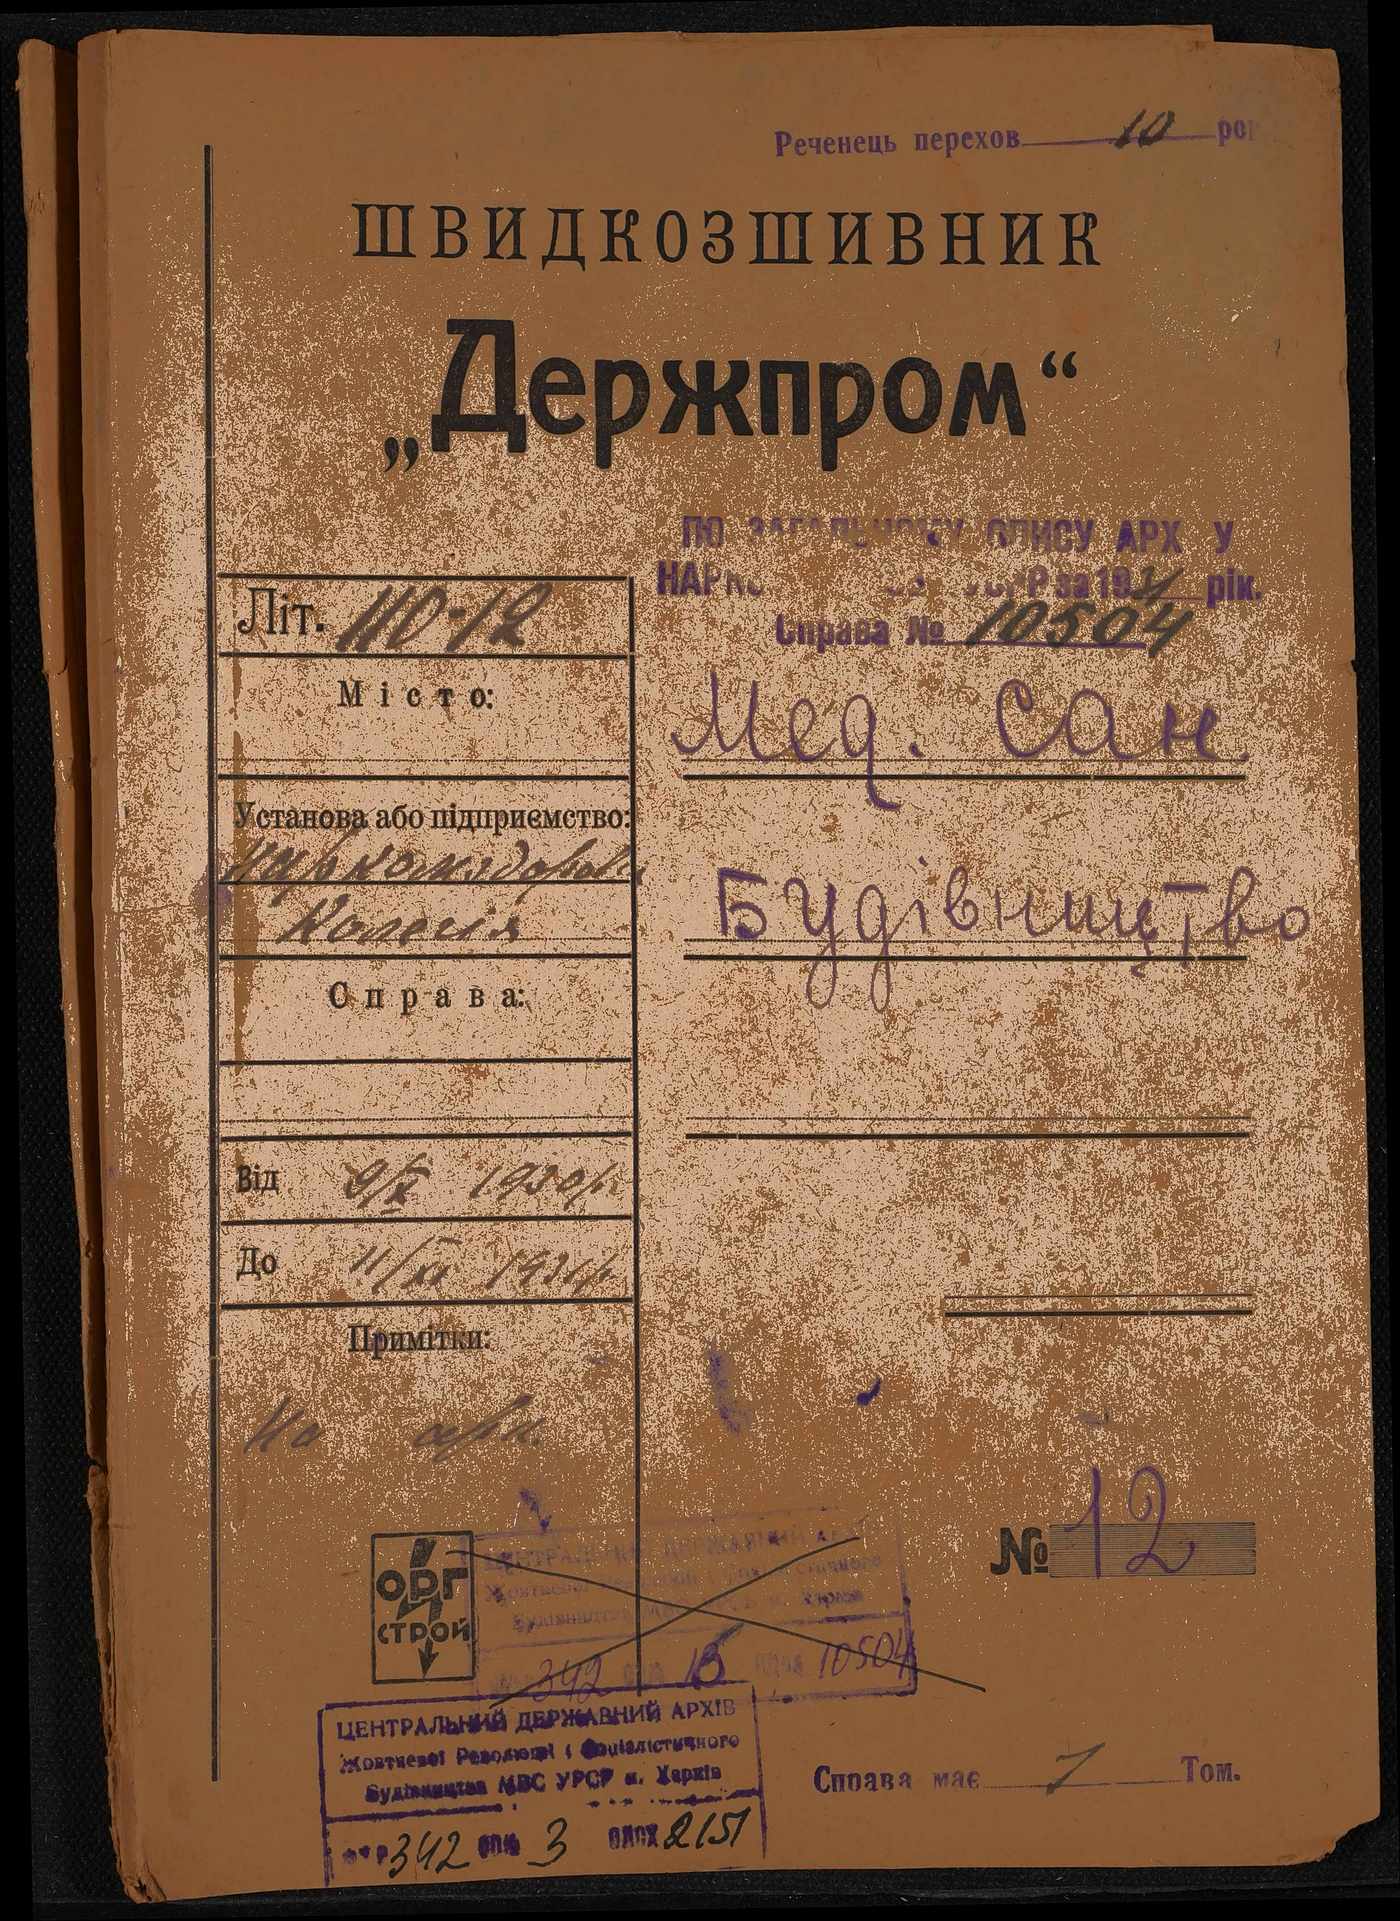 Реченець перехов. 10 рок
ШВИДКОЗШИВНИК
„Держпром“
ПО ЗАГАЛЬНОМУ ОПИСУ АРХ У
УСРР за 1931 рік.
Справа № 10504
Літ. НО-12
Місто:
Мед. Сан.
Установа або підприємство:
Наркомздоров.
Колегія
Будівництво
Справа:
Від 9/X 1930 р.
До 11/XI 1931 р.
Примітки:
На арк.
№ 12
ОРГ
СТРОЙ
ЦЕНТРАЛЬНИЙ ДЕРЖАВНИЙ АРХІВ
Жовтневої Революції і Соціалістичного
Будівництва МВС УРСР м. Харків
342 15 10504
ЦЕНТРАЛЬНИЙ ДЕРЖАВНИЙ АРХІВ
Жовтневої Революції і Соціалістичного
Будівництва МВС УРСР м. Харків
342 3 2151
Справа має 1 Том.